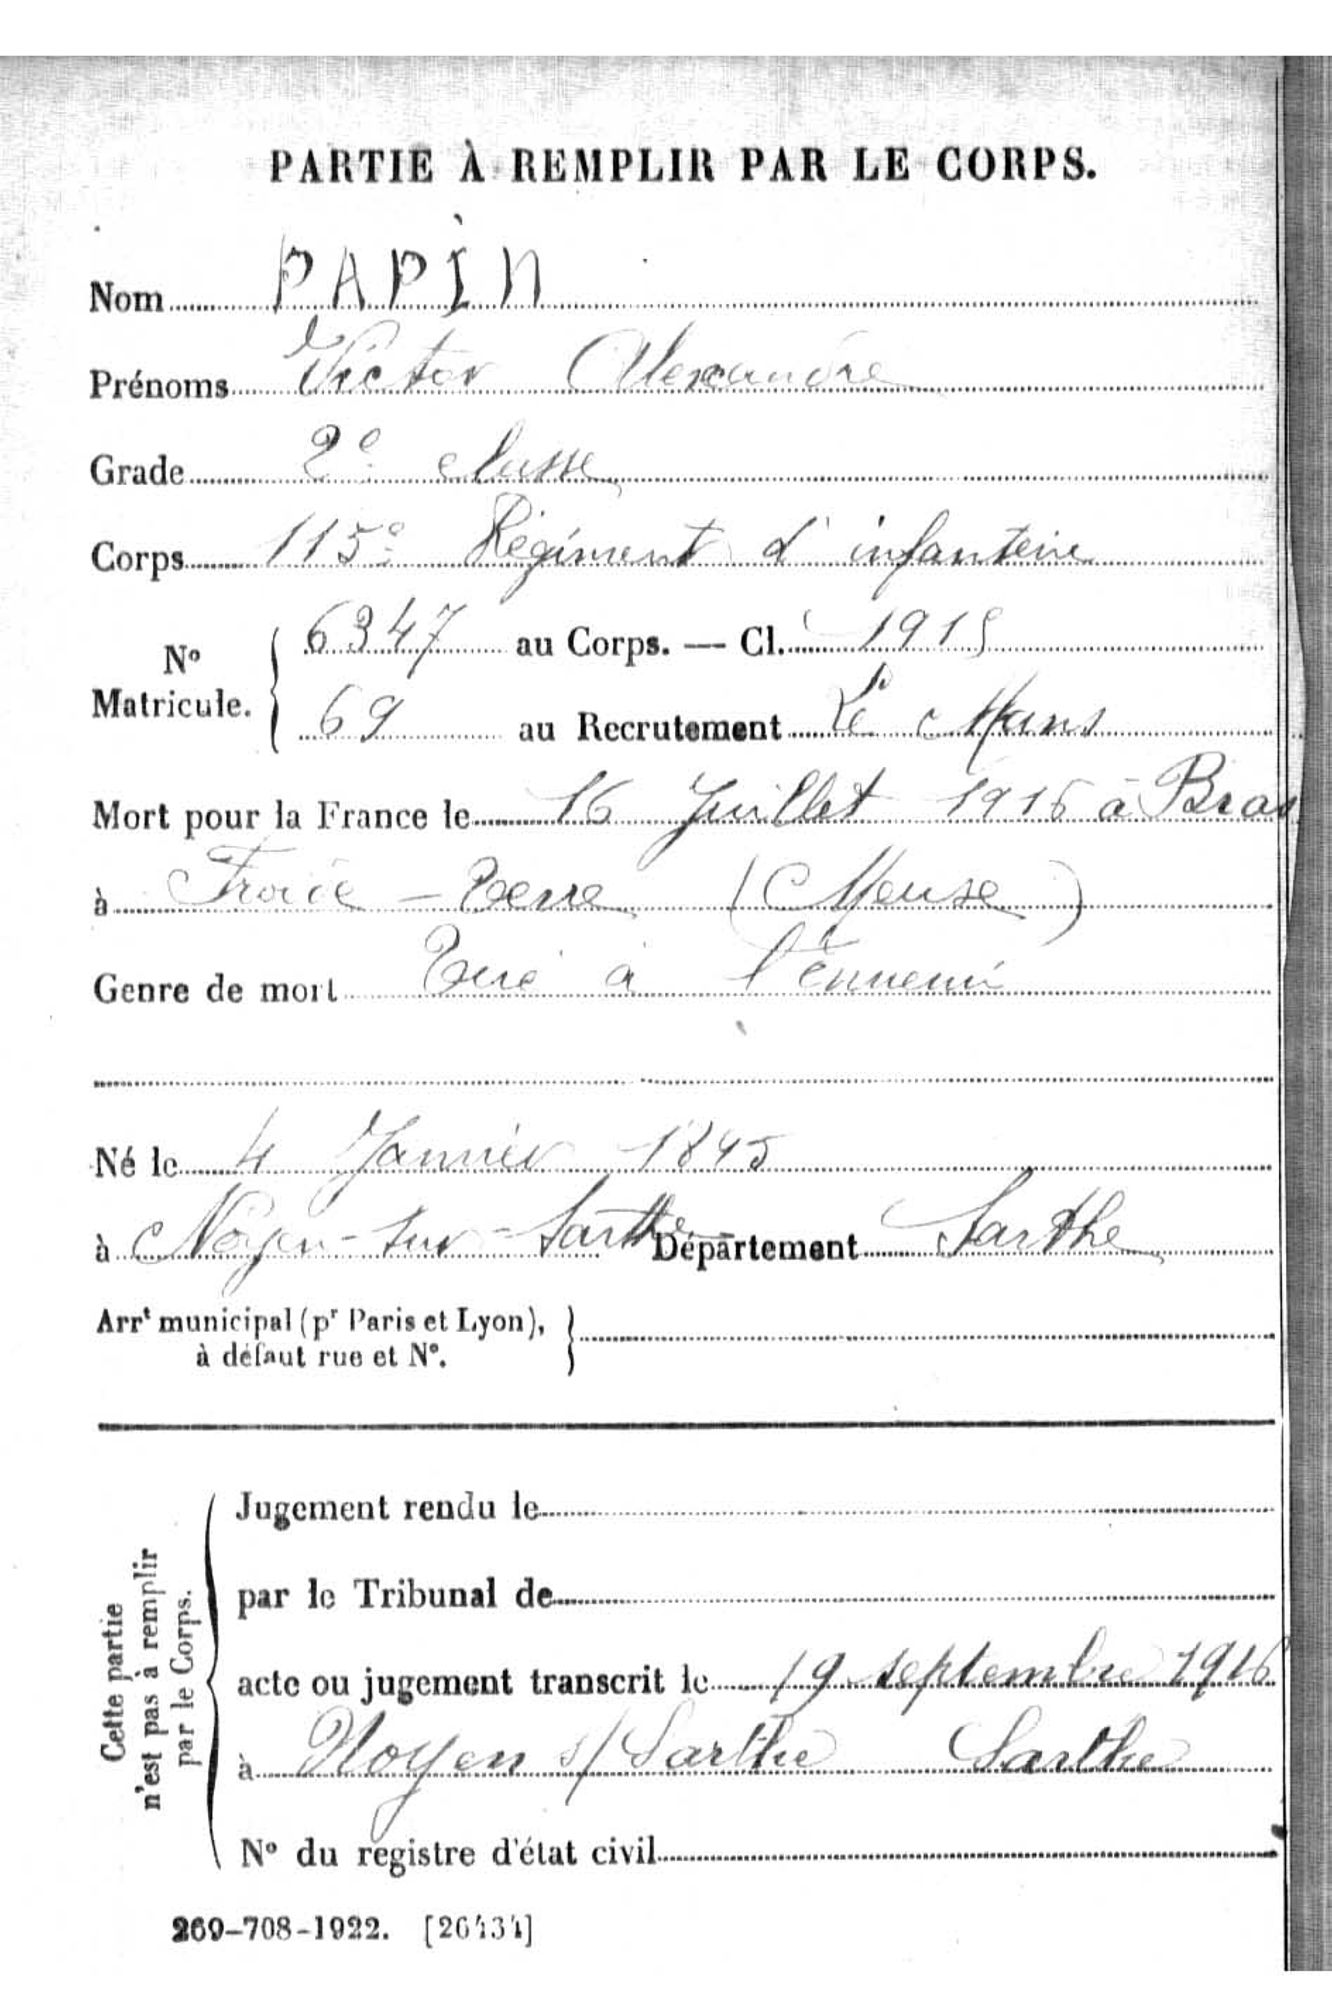 PARTIE À REMPLIR PAR LE CORPS.
Nom PAPIN
Prénoms Victor Alexandre
Grade 2e classe
Corps 115e Régiment d'infanterie
No Matricule. 6347 au Corps. — Cl. 1915
69 au Recrutement Le Mans
Mort pour la France le 16 Juillet 1916 à Bras
à Froide-Terre (Meuse)
Genre de mort Tué à l'Ennemi
Né le 4 Janvier 1895
à Noyen-sur-Sarthe Département Sarthe
Arrt municipal (pr Paris et Lyon),
à défaut rue et No.
Cette partie
n'est pas à remplir
par le Corps.
Jugement rendu le
par le Tribunal de
acte ou jugement transcrit le 19 septembre 1916
à Noyen s/Sarthe Sarthe
No du registre d'état civil
269-708-1922. [26434]